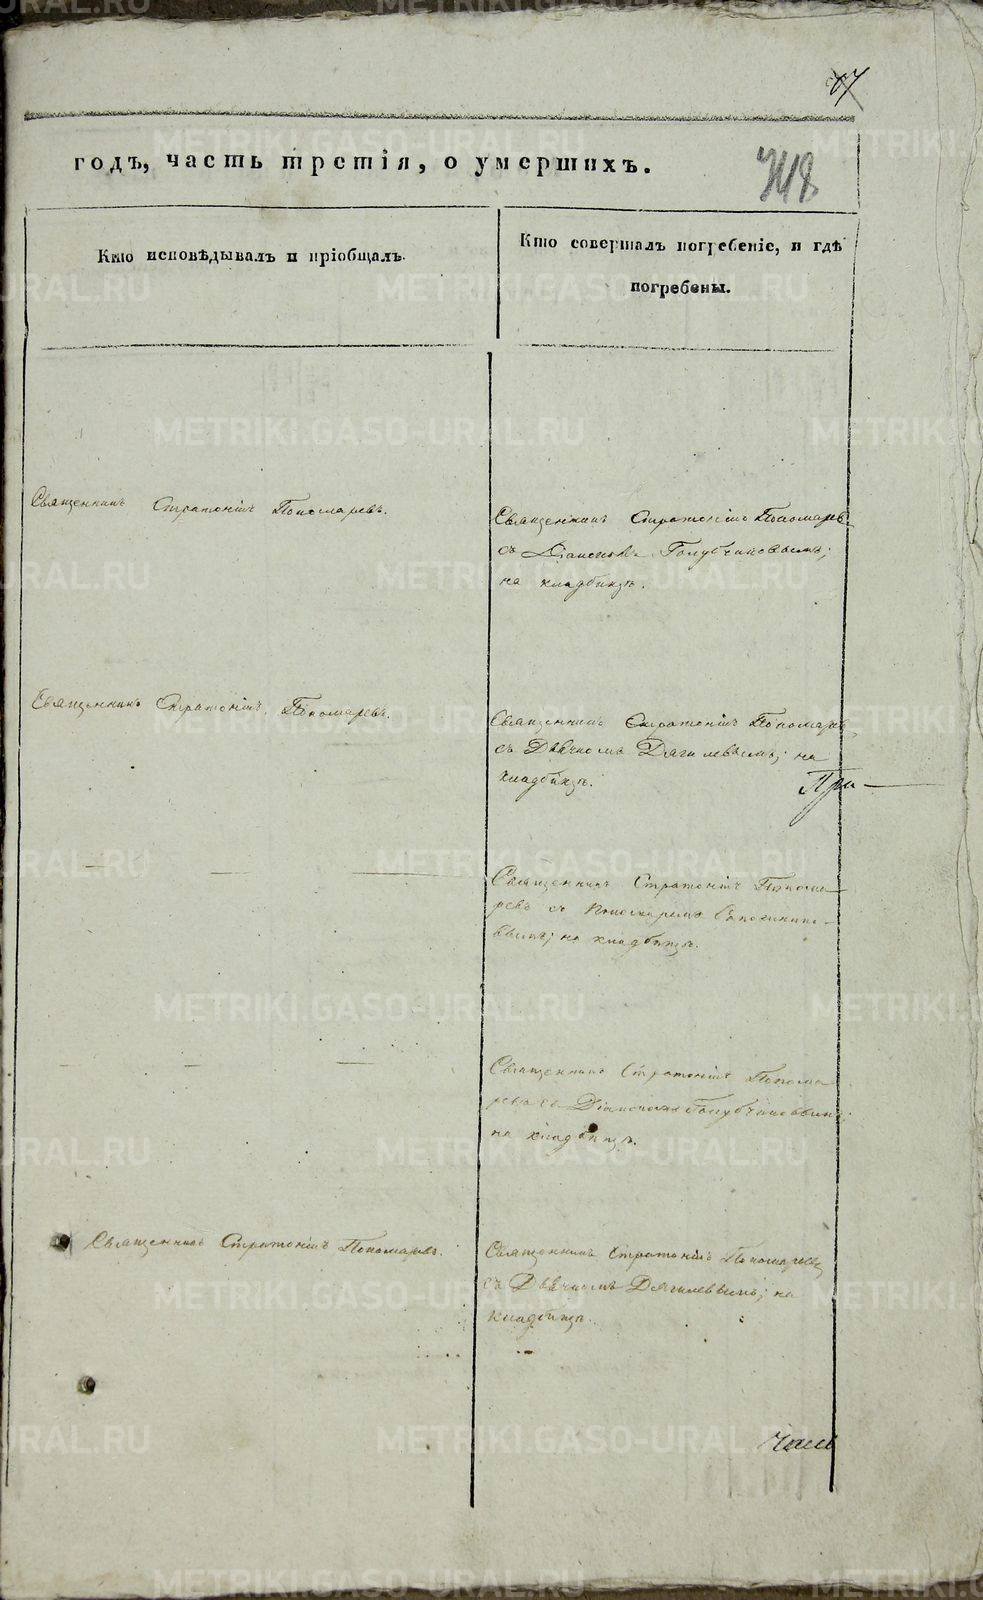 годъ, часть третія, о умершихъ.
718
Кто исповѣдывалъ и пріобщалъ.
Кто совершалъ погребеніе, и гдѣ
погребены.
Священникъ Стратоникъ Пономаревъ.
Священникъ Стратоникъ Пономарев
съ Діакономъ Голубчиковымъ;
на кладбищѣ.
Священникъ Стратоникъ Пономаревъ.
Священникъ Стратоникъ Пономаревъ
съ Дьячкомъ Дягилевымъ; на
кладбищѣ.
При
Священникъ Стратоникъ Понома
ревъ съ Пономаремъ
вымъ; на кладбищѣ.
Священникъ Стратоникъ Понома
ревъ съ Діакономъ Голубчиковымъ;
на кладбищѣ.
Священникъ Стратоникъ Пономаревъ.
Священникъ Стратоникъ Пономаревъ
съ Дьячкомъ Дягилевымъ; на
кладбищѣ.
METRIKI.GASO-URAL.RU